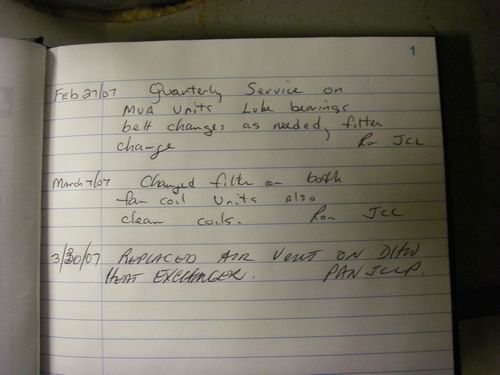 1
Feb 27/07 Quarterly Service on
MUA Units Lube bearings
belt changes as needed, filter
change Ron JCL
March 7/07 Changed filter on both
fan coil units also
clean coils. Ron JCL
3/30/07 REPLACED AIR VENT ON DHW
HEAT EXCHANGER.